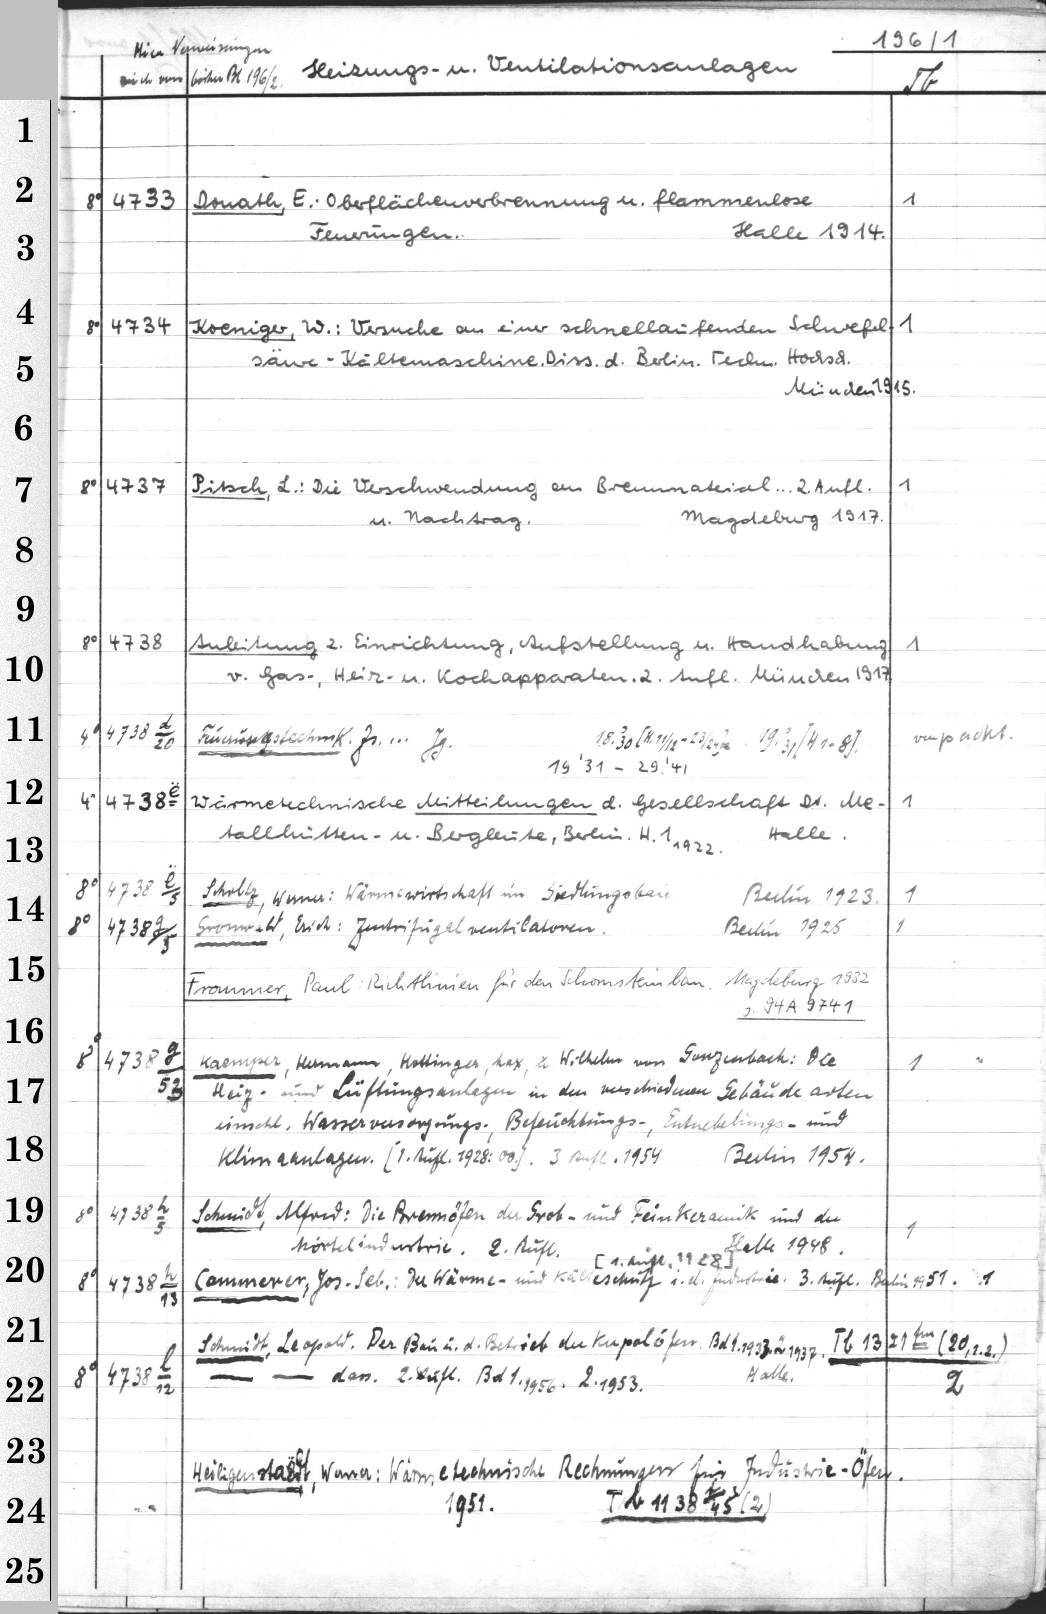 196/1
Hier Verweisungen
auch von früher Bl 196/2. Heizungs- u. Ventilationsanlagen Tb
1
2
8° 4733 Donath, E.: Oberflächenverbrennung u. flammenlose 1
3
Feuerungen. Halle 1914.
4
8° 4734 Koeniger, W.: Versuche an einer schnellaufenden Schwefel- 1
5
säure-Kältemaschine. Diss. d. Berlin. Techn. Hochsch.
München 1915.
6
7
8° 4737 Pitsch, L.: Die Verschwendung an Brennmaterial... 2. Aufl. 1
u. Nachtrag. Magdeburg 1917.
8
9
8° 4738 Anleitung z. Einrichtung, Aufstellung u. Handhabung 1
10
v. Gas-, Heiz- u. Kochapparaten. 2. Aufl. München 1917
11
4° 4738 d/20 Feuerungstechnik. Jg. ... Jg. 18.'30 [H. 11/12-23/24] 19.'31 [H 1-8]. verpackt.
19'31 - 29.'41
12
4° 4738 ë Wärmetechnische Mitteilungen d. Gesellschaft Dt. Me- 1
13
tallhütten- u. Bergleute, Berlin. H. 1 1922. Halle.
8° 4738 ë/5 Scholtz, Werner: Wärmewirtschaft im Siedlungsbau Berlin 1923. 1
14
8° 4738 g/5 Gronwald, Erich: Zentrifugalventilatoren. Berlin 1925 1
15
Frommer, Paul: Richtlinien für den Schornsteinbau. Magdeburg 1932
s. 94A 9741
16
8° 4738 g/53 Kaemper, Hermann, Hottinger, Max, u. Wilhelm von Gonzenbach: Die 1 "
17
Heiz- und Lüftungsanlagen in den verschiedenen Gebäudearten
einschl. Wasserversorgungs-, Befeuchtungs-, Entnebelungs- und
18
Klimaanlagen. [1. Aufl. 1928: 00.]. 3 Aufl. 1954 Berlin 1954.
19
8° 4738 h/5 Schmidt, Alfred: Die Brennöfen der Grob- und Feinkeramik und der 1
Mörtelindustrie. 2. Aufl. Halle 1948.
[1. Aufl. 1928]
20
8° 4738 h/13 Cammerer, Jos. Seb.: Der Wärme- und Kälteschutz i. d. Industrie. 3. Aufl. Berlin 1951. 1
21
Schmidt, Leopold. Der Bau u. d. Betrieb der Kupolöfen. Bd 1. 1933. 2. 1937. Tb 1321 hm (20, 1.2.)
22
8° 4738 l/12 — — dass. 2. Aufl. Bd 1. 1956. 2. 1953. Halle. 2
23
Heiligenstaedt, Werner: Wärmetechnische Rechnungen für Industrie-Öfen.
24
1951. Tb 1138 /45 (2)
25